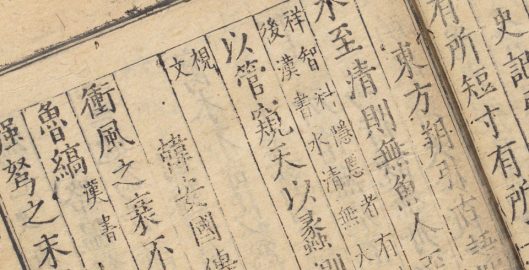 史記
有所短寸有所
東方朔引古語
水至清則無魚人至
祥智料隱慝者有
後漢書水清無大
以管窺天以蠡
視
文
韓安國傳
衝風之衰不
魯縞漢書
强弩之末